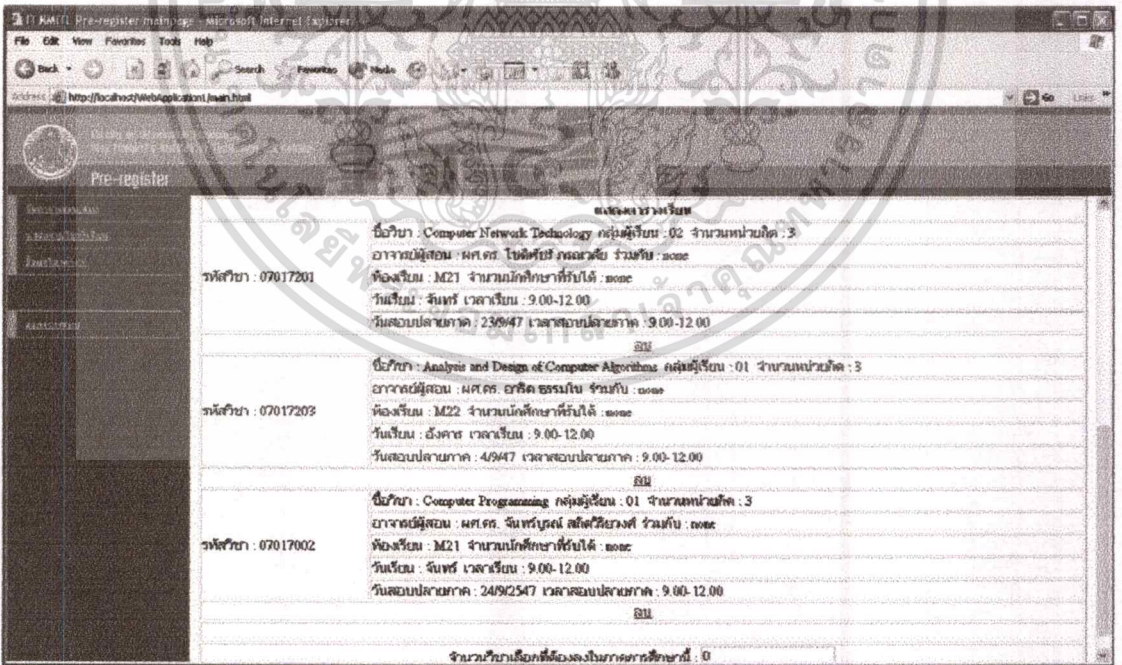 IT KMITL Pre-register mainpage - Microsoft Internet Explorer
File Edit View Favorites Tools Help
Back Search Favorites Media
Address http://localhost/WebApplication1/main.html Go Links
Pre-register
แสดงตารางเรียน
รหัสวิชา : 07017201
ชื่อวิชา : Computer Network Technology กลุ่มผู้เรียน : 02 จำนวนหน่วยกิต : 3
อาจารย์ผู้สอน : ผศ.ดร. โชติพัชร์ ภรณวลัย ร่วมกับ : none
ห้องเรียน : M21 จำนวนนักศึกษาที่รับได้ : none
วันเรียน : จันทร์ เวลาเรียน : 9.00-12.00
วันสอบปลายภาค : 23/9/47 เวลาสอบปลายภาค : 9.00-12.00
ลบ
รหัสวิชา : 07017203
ชื่อวิชา : Analysis and Design of Computer Algorithms กลุ่มผู้เรียน : 01 จำนวนหน่วยกิต : 3
อาจารย์ผู้สอน : ผศ.ดร. อาริต ธรรมโน ร่วมกับ : none
ห้องเรียน : M22 จำนวนนักศึกษาที่รับได้ : none
วันเรียน : อังคาร เวลาเรียน : 9.00-12.00
วันสอบปลายภาค : 4/9/47 เวลาสอบปลายภาค : 9.00-12.00
ลบ
รหัสวิชา : 07017002
ชื่อวิชา : Computer Programming กลุ่มผู้เรียน : 01 จำนวนหน่วยกิต : 3
อาจารย์ผู้สอน : ผศ.ดร. จันทร์บูรณ์ สถิตวิริยวงศ์ ร่วมกับ : none
ห้องเรียน : M21 จำนวนนักศึกษาที่รับได้ : none
วันเรียน : จันทร์ เวลาเรียน : 9.00-12.00
วันสอบปลายภาค : 24/9/2547 เวลาสอบปลายภาค : 9.00-12.00
ลบ
จำนวนวิชาเลือกที่ต้องลงในภาคการศึกษานี้ : 0